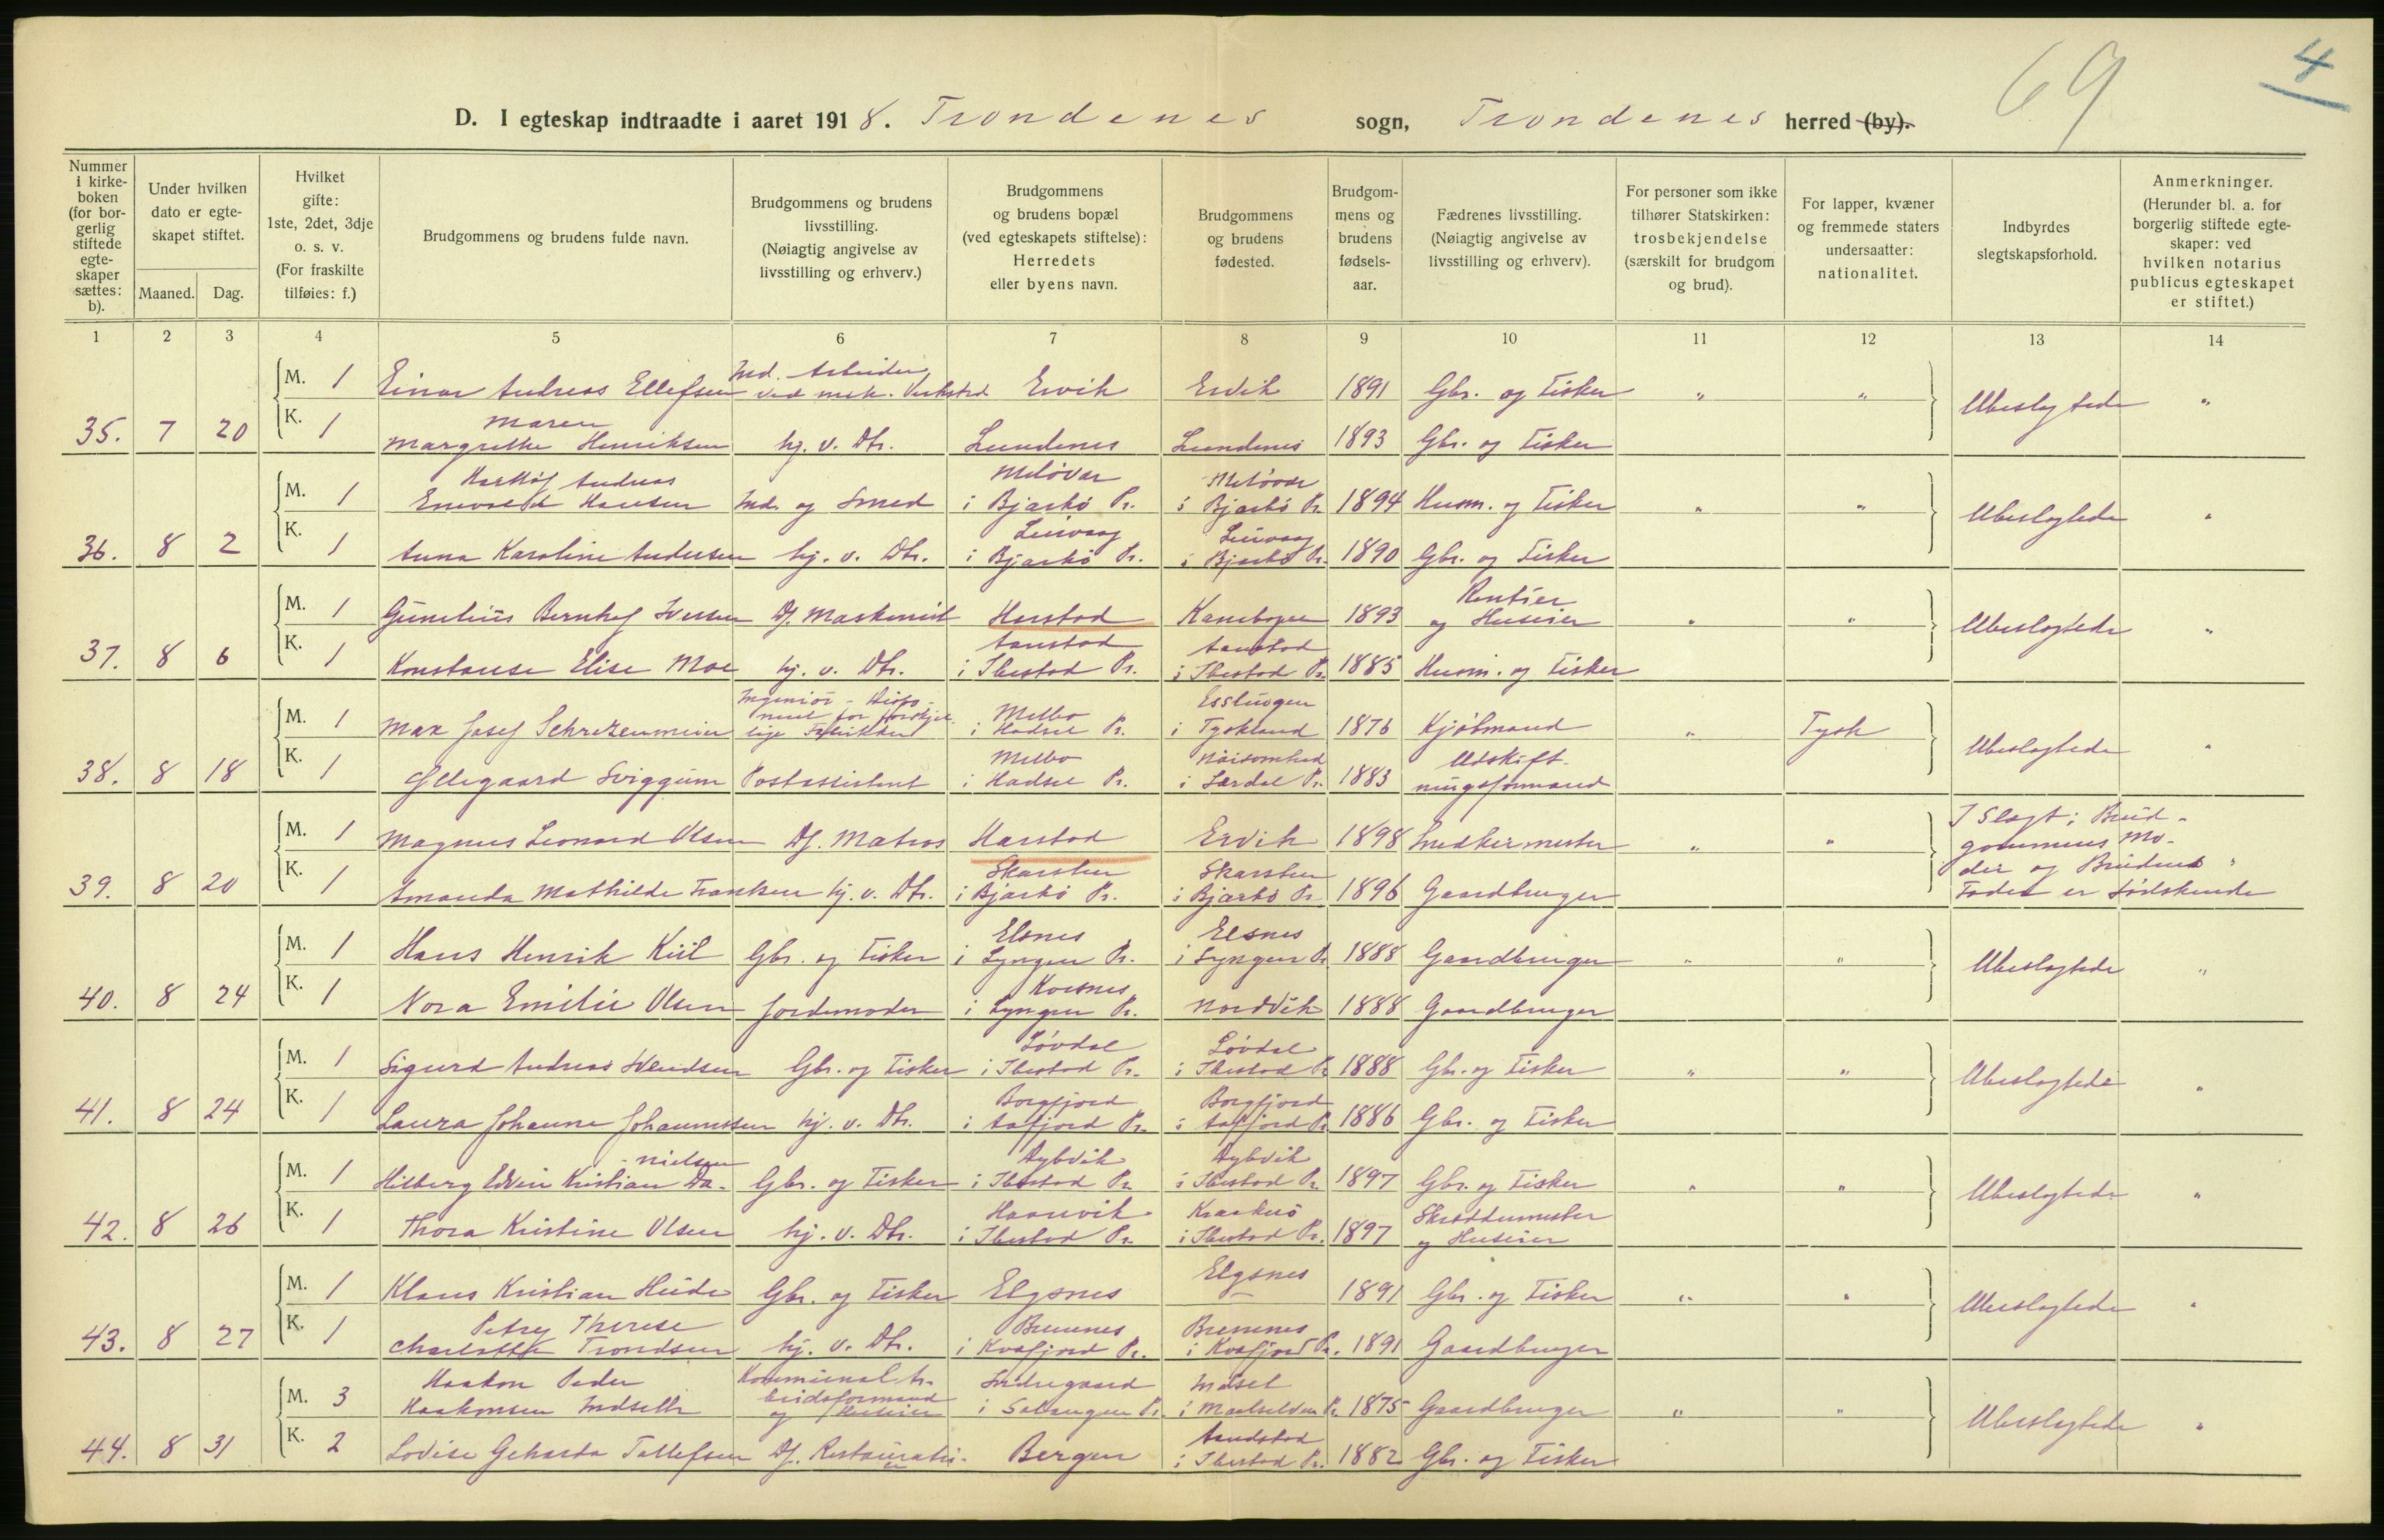 69
4
D. I egteskap indtraadte i aaret 1918. Trondenes sogn, Trondenes herred (by).
Nummer i kirkeboken (for borgerlig stiftede egteskaper sættes: b).
Under hvilken dato er egteskapet stiftet.
Maaned. Dag.
Hvilket gifte: 1ste, 2det, 3dje o. s. v. (For fraskilte tilføies: f.)
Brudgommens og brudens fulde navn.
Brudgommens og brudens livsstilling. (Nøiagtig angivelse av livsstilling og erhverv.)
Brudgommens og brudens bopæl (ved egteskapets stiftelse): Herredets eller byens navn.
Brudgommens og brudens fødested.
Brudgommens og brudens fødselsaar.
Fædrenes livsstilling. (Nøiagtig angivelse av livsstilling og erhverv).
For personer som ikke tilhører Statskirken: trosbekjendelse (særskilt for brudgom og brud).
For lapper, kvæner og fremmede staters undersaatter: nationalitet.
Indbyrdes slegtskapsforhold.
Anmerkninger. (Herunder bl. a. for borgerlig stiftede egteskaper: ved hvilken notarius publicus egteskapet er stiftet.)
1 2 3 4 5 6 7 8 9 10 11 12 13 14
M. 1 Einar Andreas Ellefsen Ind. Arbeider ved mek. Verksted Ervik Ervik 1891 Gbr. og Fisker " " Ubeslegtede "
35. 7 20 K. 1 Maren Margrethe Henriksen hj. v. Dtr. Lundenes Lundenes 1893 Gbr. og Fisker
M. 1 Andreas Hansen Ind. og Smed Meløvær i Bjarkø Pr. Meløvær i Bjarkø Pr. 1894 Husm. og Fisker " " Ubeslegtede "
36. 8 2 K. 1 Anna Karoline Andersen hj. v. Dtr. i Bjarkø Pr. i Bjarkø Pr. 1890 Gbr. og Fisker
M. 1 Bernhof Iversen Df. Maskinist Harstad Kanebogen 1893 Rentier og Huseier " " Ubeslegtede "
37. 8 6 K. 1 Konstanse Elise Moe hj. v. Dtr. Aanstad i Ibestad Pr. Aanstad i Ibestad Pr. 1885 Husm. og Fisker
M. 1 Max Josef Schrezenmeier Ingeniør - Disponent for forskjellige Fabrikker Melbo i Hadsel Pr. Esslingen i Tyskland 1876 Kjøbmand " Tysk Ubeslegtede "
38. 8 18 K. 1 Ollegaard Sviggum Postassistent Melbo i Hadsel Pr. Nøisomhed i Lærdal Pr. 1883 Udskiftningsformand
M. 1 Magnus Leonard Olsen Df. Matros Harstad Ervik 1898 Snedkermester " " I Slegt: Brudgommens Moder og Brudens Fader er Sødskende "
39. 8 20 K. 1 Amanda Mathilde Franksen hj. v. Dtr. Skarsten i Bjarkø Pr. Skarsten i Bjarkø Pr. 1896 Gaardbruger
M. 1 Hans Henrik Kiil Gbr. og Fisker Elsnes i Lyngen Pr. Elsnes i Lyngen Pr 1888 Gaardbruger " " Ubeslegtede "
40. 8 24 K. 1 Nora Emilie Olsen Jordemoder Koesnes i Lyngen Pr. Nordvik 1888 Gaardbruger
M. 1 Sigurd Andreas Svendsen Gbr. og Fisker Løvdal i Ibestad Pr. Løvdal i Ibestad Pr 1888 Gbr. og Fisker " " Ubeslegtede "
41. 8 24 K. 1 Laura Johanne Johannessen hj. v. Dtr. Borgfjord i Aafjord Pr. Borgfjord i Aafjord Pr 1886 Gbr. og Fisker
M. 1 Hilberg Edvin Kristian Danielsen Gbr. og Fisker Dybvik i Ibestad Pr. Dybvik i Ibestad Pr. 1897 Gbr. og Fisker " " Ubeslegtede "
42. 8 26 K. 1 Thora Kristine Olsen hj. v. Dtr. i Ibestad Pr. Kraakrø i Ibestad Pr. 1897 Skræddermester og Huseier
M. 1 Klaus Kristian Heide Gbr. og Fisker Elgsnes Elgsnes 1891 Gbr. og Fisker " " Ubeslegtede "
43. 8 27 K. 1 Petry Therese Charlotte Trondsen hj. v. Dtr. Bremnes i Kvæfjord Pr. Bremnes i Kvæfjord Pr. 1891 Gaardbruger
M. 3 Haakon Peder Haakonsen Indseth Kommunal Arbeidsformand og Huseier Søndregaard i Salangen Pr. i Maalselven Pr. 1875 Gaardbruger " " Ubeslegtede "
44. 8 31 K. 2 Lovise Geharda Tollefsen Df. Bergen Aandstad i Ibestad Pr. 1882 Gbr. og Fisker